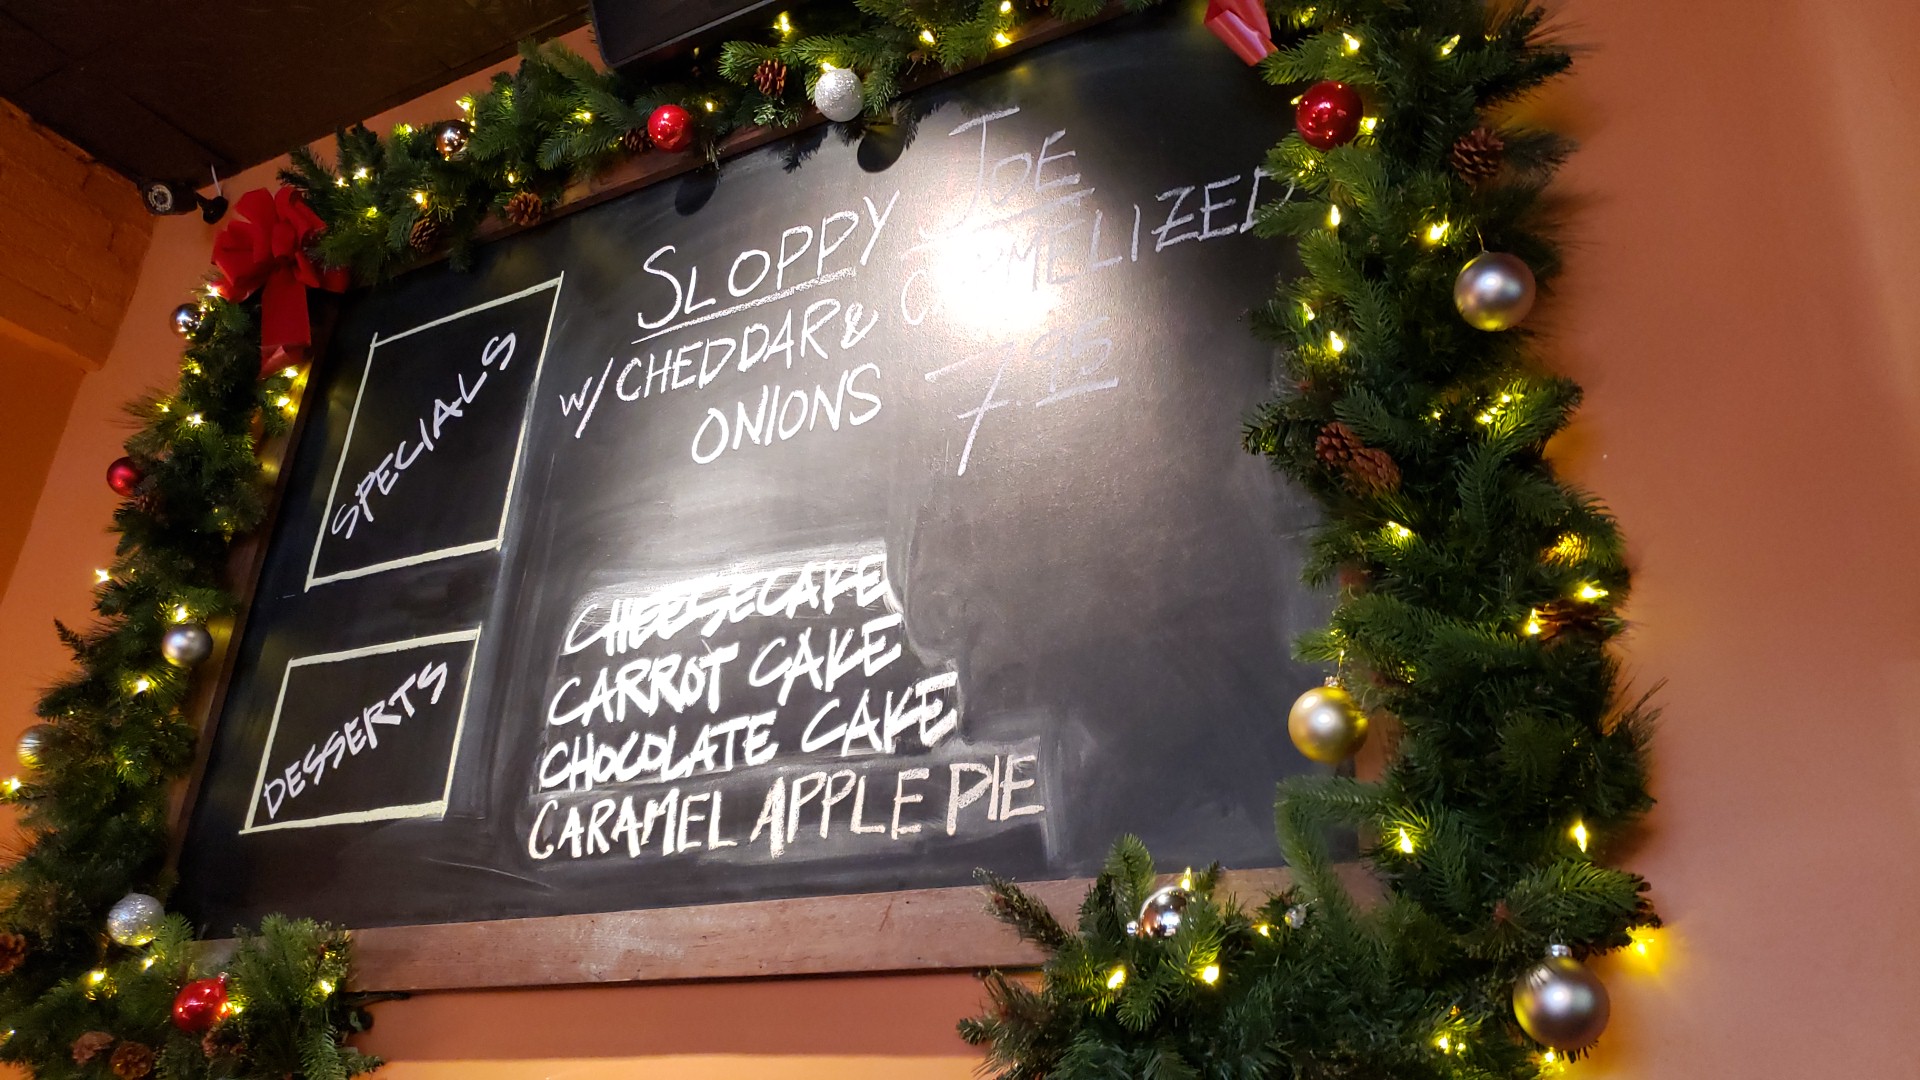 SPECIALS
SLOPPY JOE
W/ CHEDDAR & CARMELIZED
ONIONS - 7.95
DESSERTS
CHEESECAKE
CARROT CAKE
CHOCOLATE CAKE
CARAMEL APPLE PIE